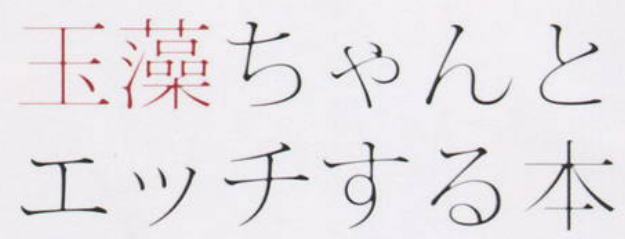 玉藻ちゃんと
エッチする本